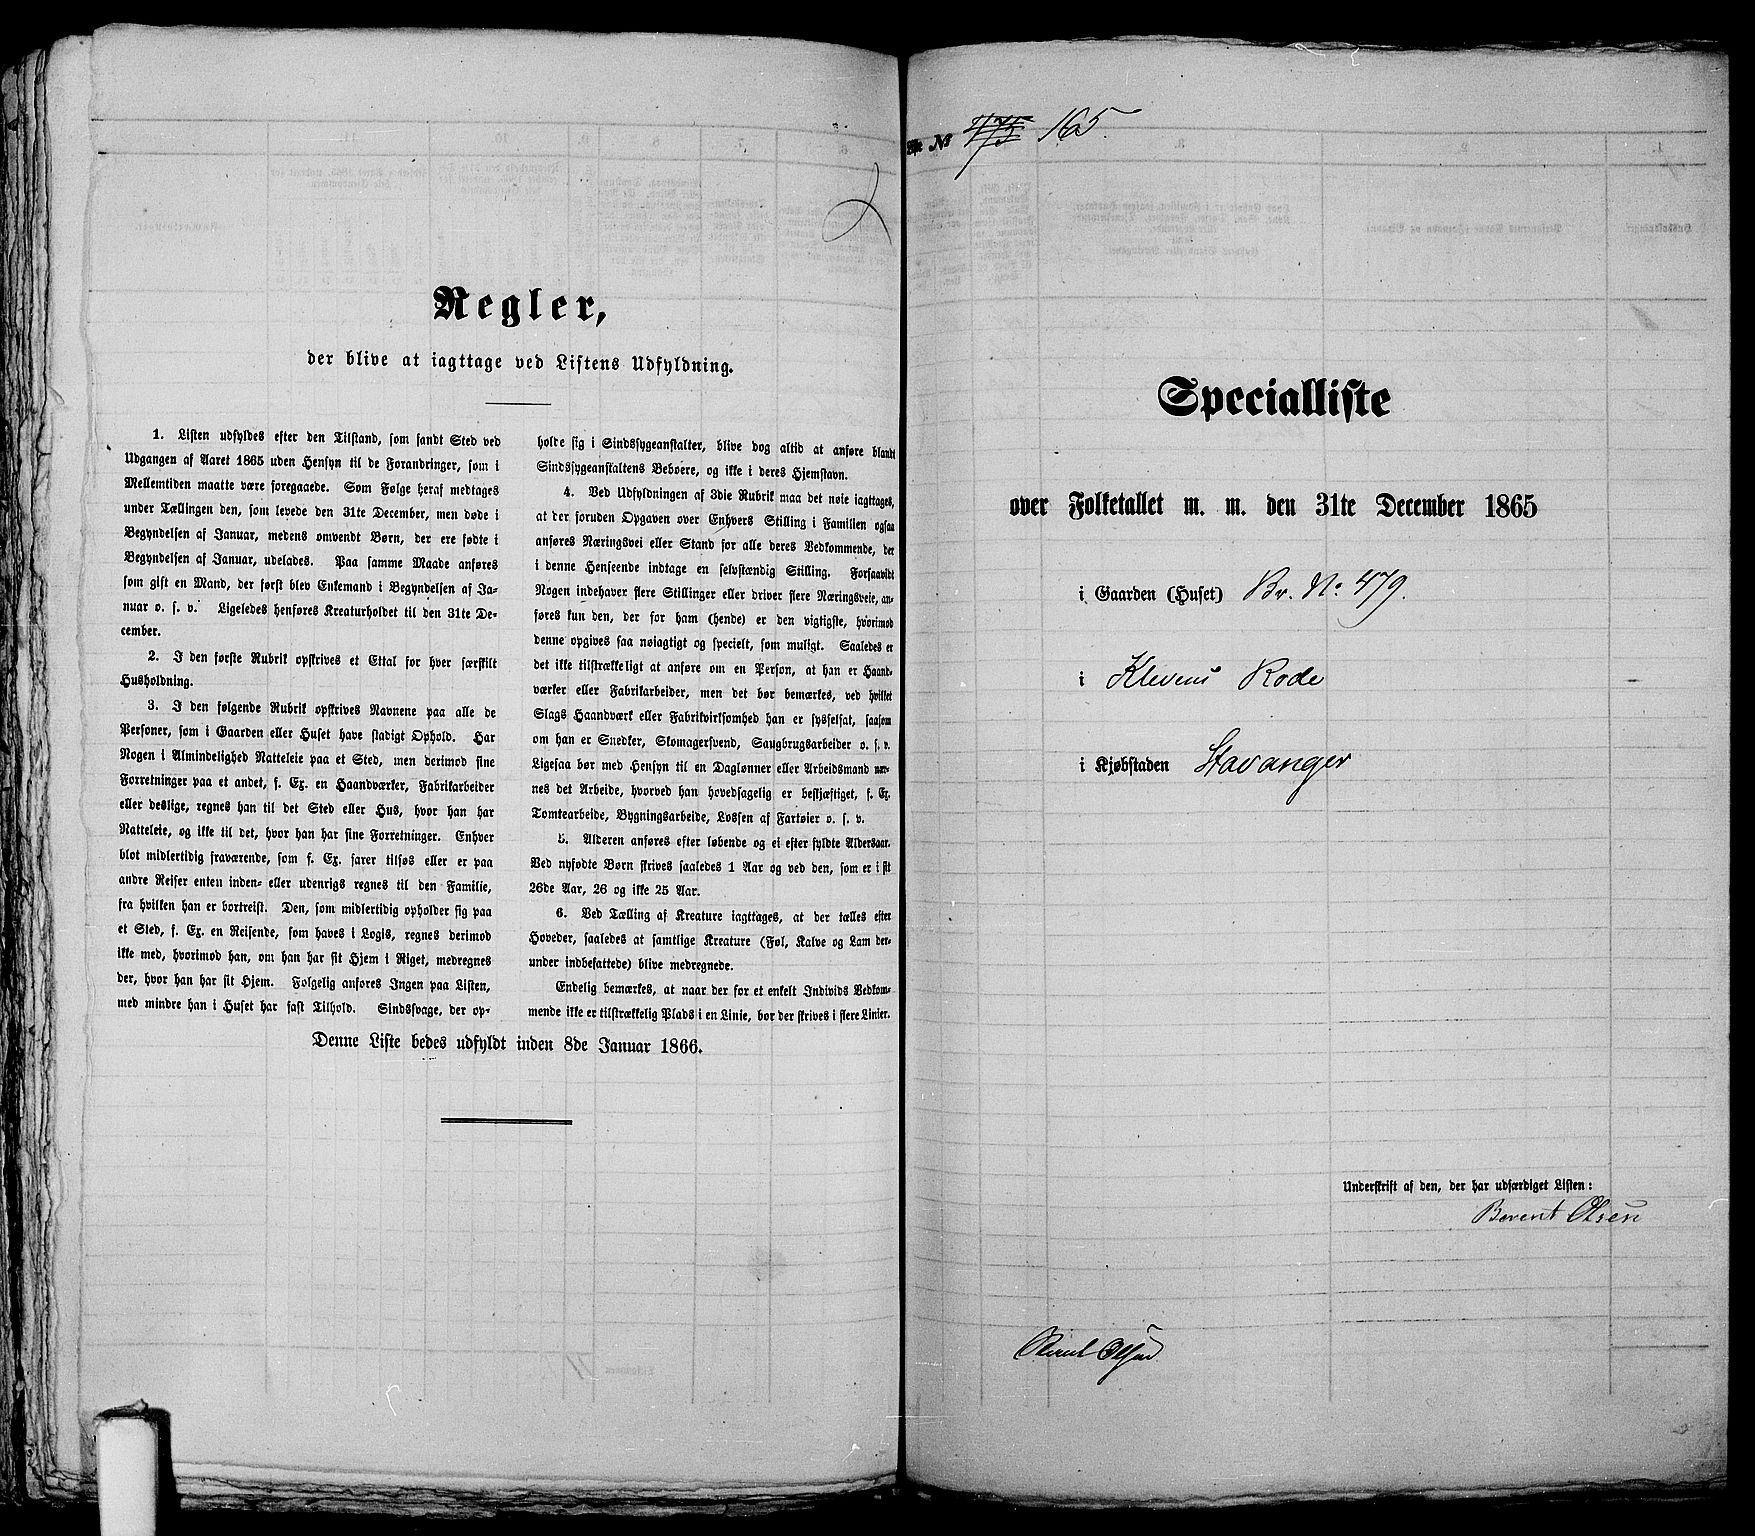 Regler,
der blive at iagttage ved Listens Udfyldning.
1. Listen udfyldes efter den Tilstand, som fandt Sted ved
Udgangen af Aaret 1865 uden Hensyn til de Forandringer, som i
Mellemtiden maatte være foregaaede. Som Følge heraf medtages
under Tællingen den, som levede den 31te December, men døde i
Begyndelsen af Januar, medens omvendt Børn, der ere fødte i
Begyndelsen af Januar, udelades. Paa samme Maade anføres
som gift en Mand, der først blev Enkemand i Begyndelsen af Ja-
nuar o. s. v. Ligeledes henføres Kreaturholdet til den 31te De-
cember.
2. I den første Rubrik opskrives et Ettal for hver særskilt
Husholdning.
3. I den følgende Rubrik opskrives Navnene paa alle de
Personer, som i Gaarden eller Huset have stadigt Ophold. Har
Nogen i Almindelighed Natteleie paa et Sted, men derimod sine
Forretninger paa et andet, f. Ex. en Haandværker, Fabrikarbeider
eller deslige, regnes han til det Sted eller Hus, hvor han har
Natteleie, og ikke til det, hvor han har sine Forretninger. Enhver
blot midlertidig fraværende, som f. Ex. farer tilsøs eller er paa
andre Reiser enten inden- eller udenrigs regnes til den Familie,
fra hvilken han er bortreist. Den, som midlertidig opholder sig paa
et Sted, f. Ex. en Reisende, som haves i Logis, regnes derimod
ikke med, hvorimod han, om han har sit Hjem i Riget, medregnes
der, hvor han har sit Hjem. Følgelig anføres Ingen paa Listen,
med mindre han i Huset har fast Tilhold. Sindssvage, der op-
holde sig i Sindssygeanstalter, blive dog altid at anføre blandt
Sindssygeanstaltens Beboere, og ikke i deres Hjemstavn.
4. Ved Udfyldningen af 3die Rubrik maa det nøie iagttages,
at der foruden Opgaven over Enhvers Stilling i Familien ogsaa
anføres Næringsvei eller Stand for alle deres Vedkommende, der
i denne Henseende indtage en selvstændig Stilling. Forsaavidt
Nogen indehaver flere Stillinger eller driver flere Næringsveie, an-
føres kun den, der for ham (hende) er den vigtigste, hvorimod
denne opgives saa nøiagtigt og specielt, som muligt. Saaledes er
det ikke tilstrækkeligt at anføre om en Person, at han er Haand-
værker eller Fabrikarbeider, men det bør bemærkes, ved hvilket
Slags Haandværk eller Fabrikvirksomhed han er sysselsat, saasom
om han er Snedker, Skomagersvend, Saugbrugsarbeider o. s. v.
Ligesaa bør med Hensyn til en Daglønner eller Arbeidsmand næv-
nes det Arbeide, hvorved han hovedsagelig er beskjæftiget, f. Ex.
Tomtearbeide, Bygningsarbeide, Lossen af Fartøier o. s. v.
5. Alderen anføres efter løbende og ei efter fyldte Aldersaar.
Ved nyfødte Børn skrives saaledes 1 Aar og ved den, som er i sit
26de Aar, 26 og ikke 25 Aar.
6. Ved Tælling af Kreature iagttages, at der tælles efter
Hoveder, saaledes at samtlige Kreature (Føl, Kalve og Lam der-
under indbefattede) blive medregnede.
Endelig bemærkes, at naar der for et enkelt Individs Vedkom-
mende ikke er tilstrækkelig Plads i en Linie, bør der skrives i flere Linier.
Denne Liste bedes udfyldt inden 8de Januar 1866.
№ 175 165.
Specialliste
over Folketallet m. m. den 31te December 1865
i Gaarden (Huset) Br. No 479.
i Klevens Rode
i Kjøbstaden Stavanger
Underskrift af den, der har udfærdiget Listen:
Berent Olsen